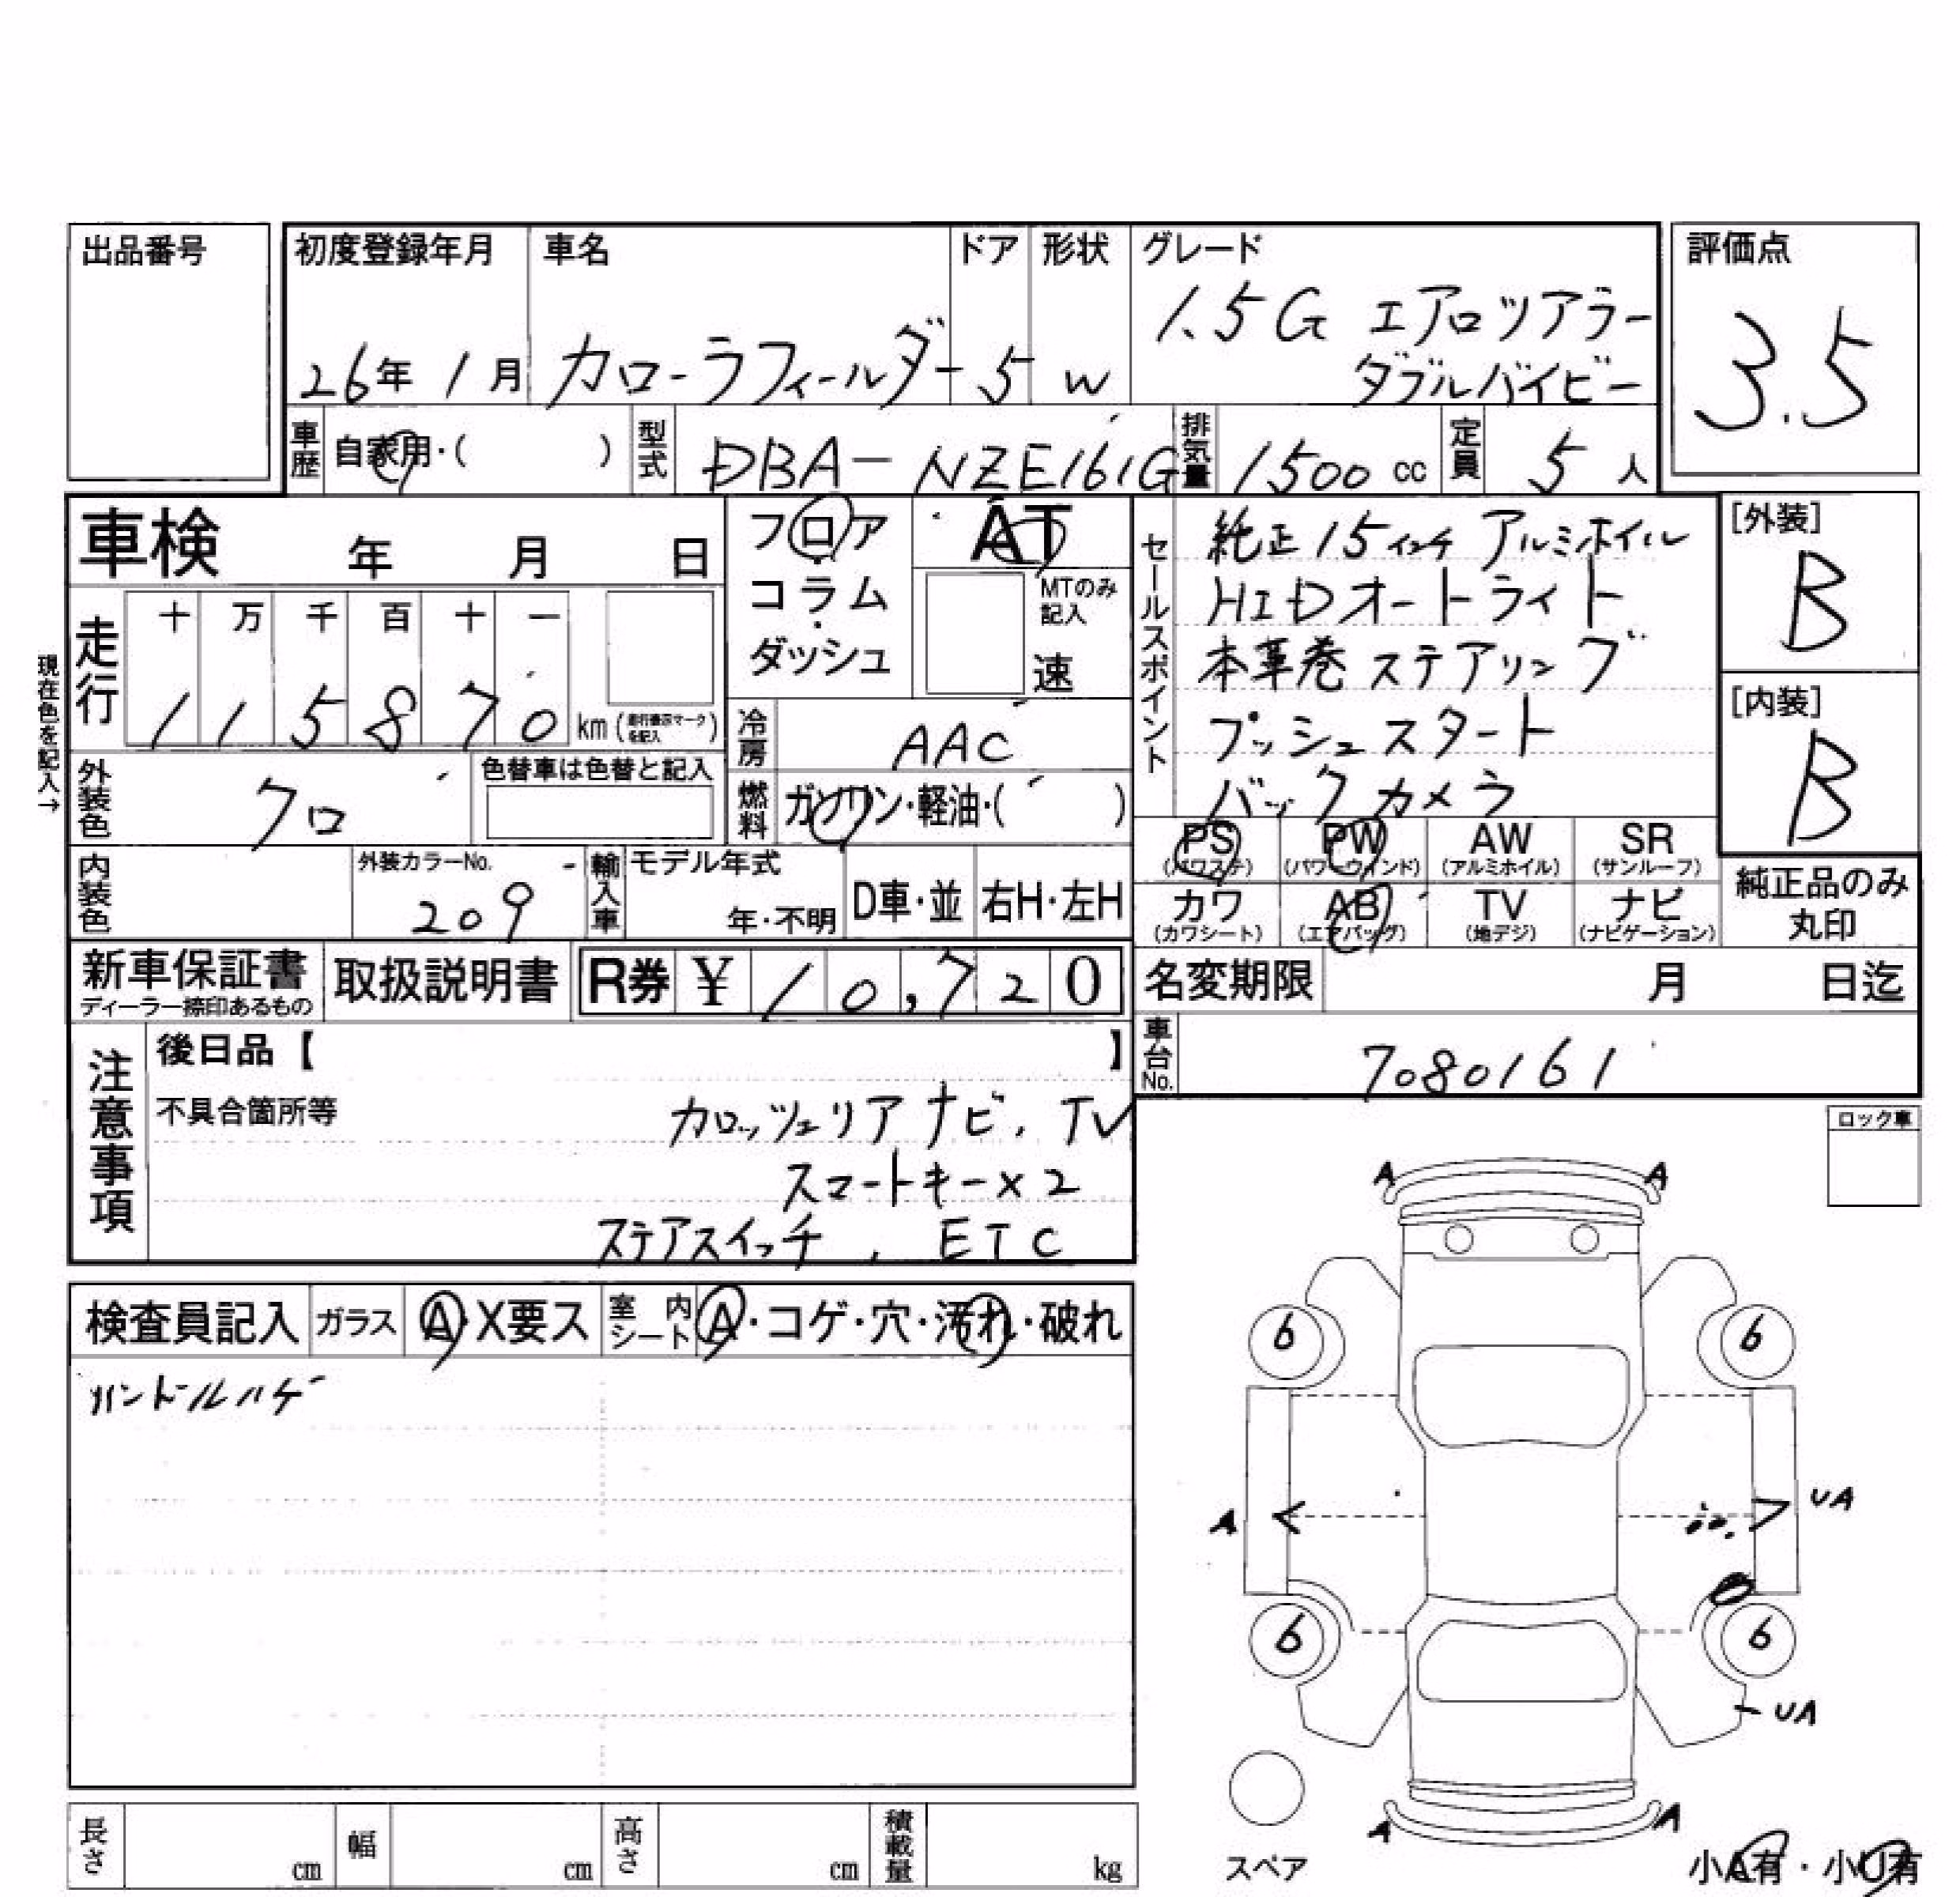 出品番号
初度登録年月 車名 ドア 形状 グレード
評価点
26年 1月 カローラフィールダー 5 W 1.5G エアロツアラー
ダブルバイビー
3.5
車歴 自家用・( ) 型式 DBA-NZE161G 排気量 1500 cc 定員 5 人
車検 年 月 日
フロア
コラム
ダッシュ
AT
MTのみ
記入
速
セールスポイント
純正 15インチ アルミホイル
HIDオートライト
本革巻ステアリング
プッシュスタート
バックカメラ
[外装]
B
[内装]
B
現在色を記入→
走行 十 万 千 百 十 一
1 1 5 8 7 0 km (走行表示マークを記入)
冷房 AAC
外装色 クロ 色替車は色替と記入
燃料 ガソリン・軽油・( )
PS (パワステ) PW (パワーウィンド) AW (アルミホイル) SR (サンルーフ)
カワ (カワシート) AB (エアバッグ) TV (地デジ) ナビ (ナビゲーション)
純正品のみ
丸印
内装色 外装カラーNo. 209 輸入車 モデル年式 年・不明 D車・並 右H・左H
新車保証書 ディーラー捺印あるもの 取扱説明書 R券 ¥ 10,720
名変期限 月 日迄
車台No. 7080161
注意事項
後日品【 】
不具合箇所等 カロッツェリアナビ、TV
スマートキー×2
ステアスイッチ、ETC
ロック車
検査員記入 ガラス A・X要ス 室内シート A・コゲ・穴・汚れ・破れ
ハンドルハゲ
A A
6 6
A UA
6 6
UA
A A
スペア
小A有・小U有
長さ cm 幅 cm 高さ cm 積載量 kg